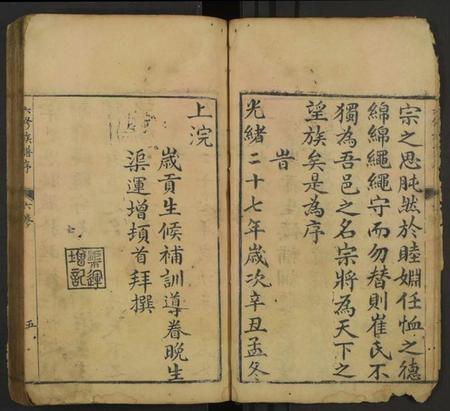 宗之思肫然於睦婣任恤之德
綿綿繩繩守而勿替則崔氏不
獨為吾邑之名宗將為天下之
望族矣是為序
旹
光緒二十七年歲次辛丑孟冬
上浣
歲貢生候補訓導眷晚生
渠運增頓首拜撰
渠運
增記
族譜序
五